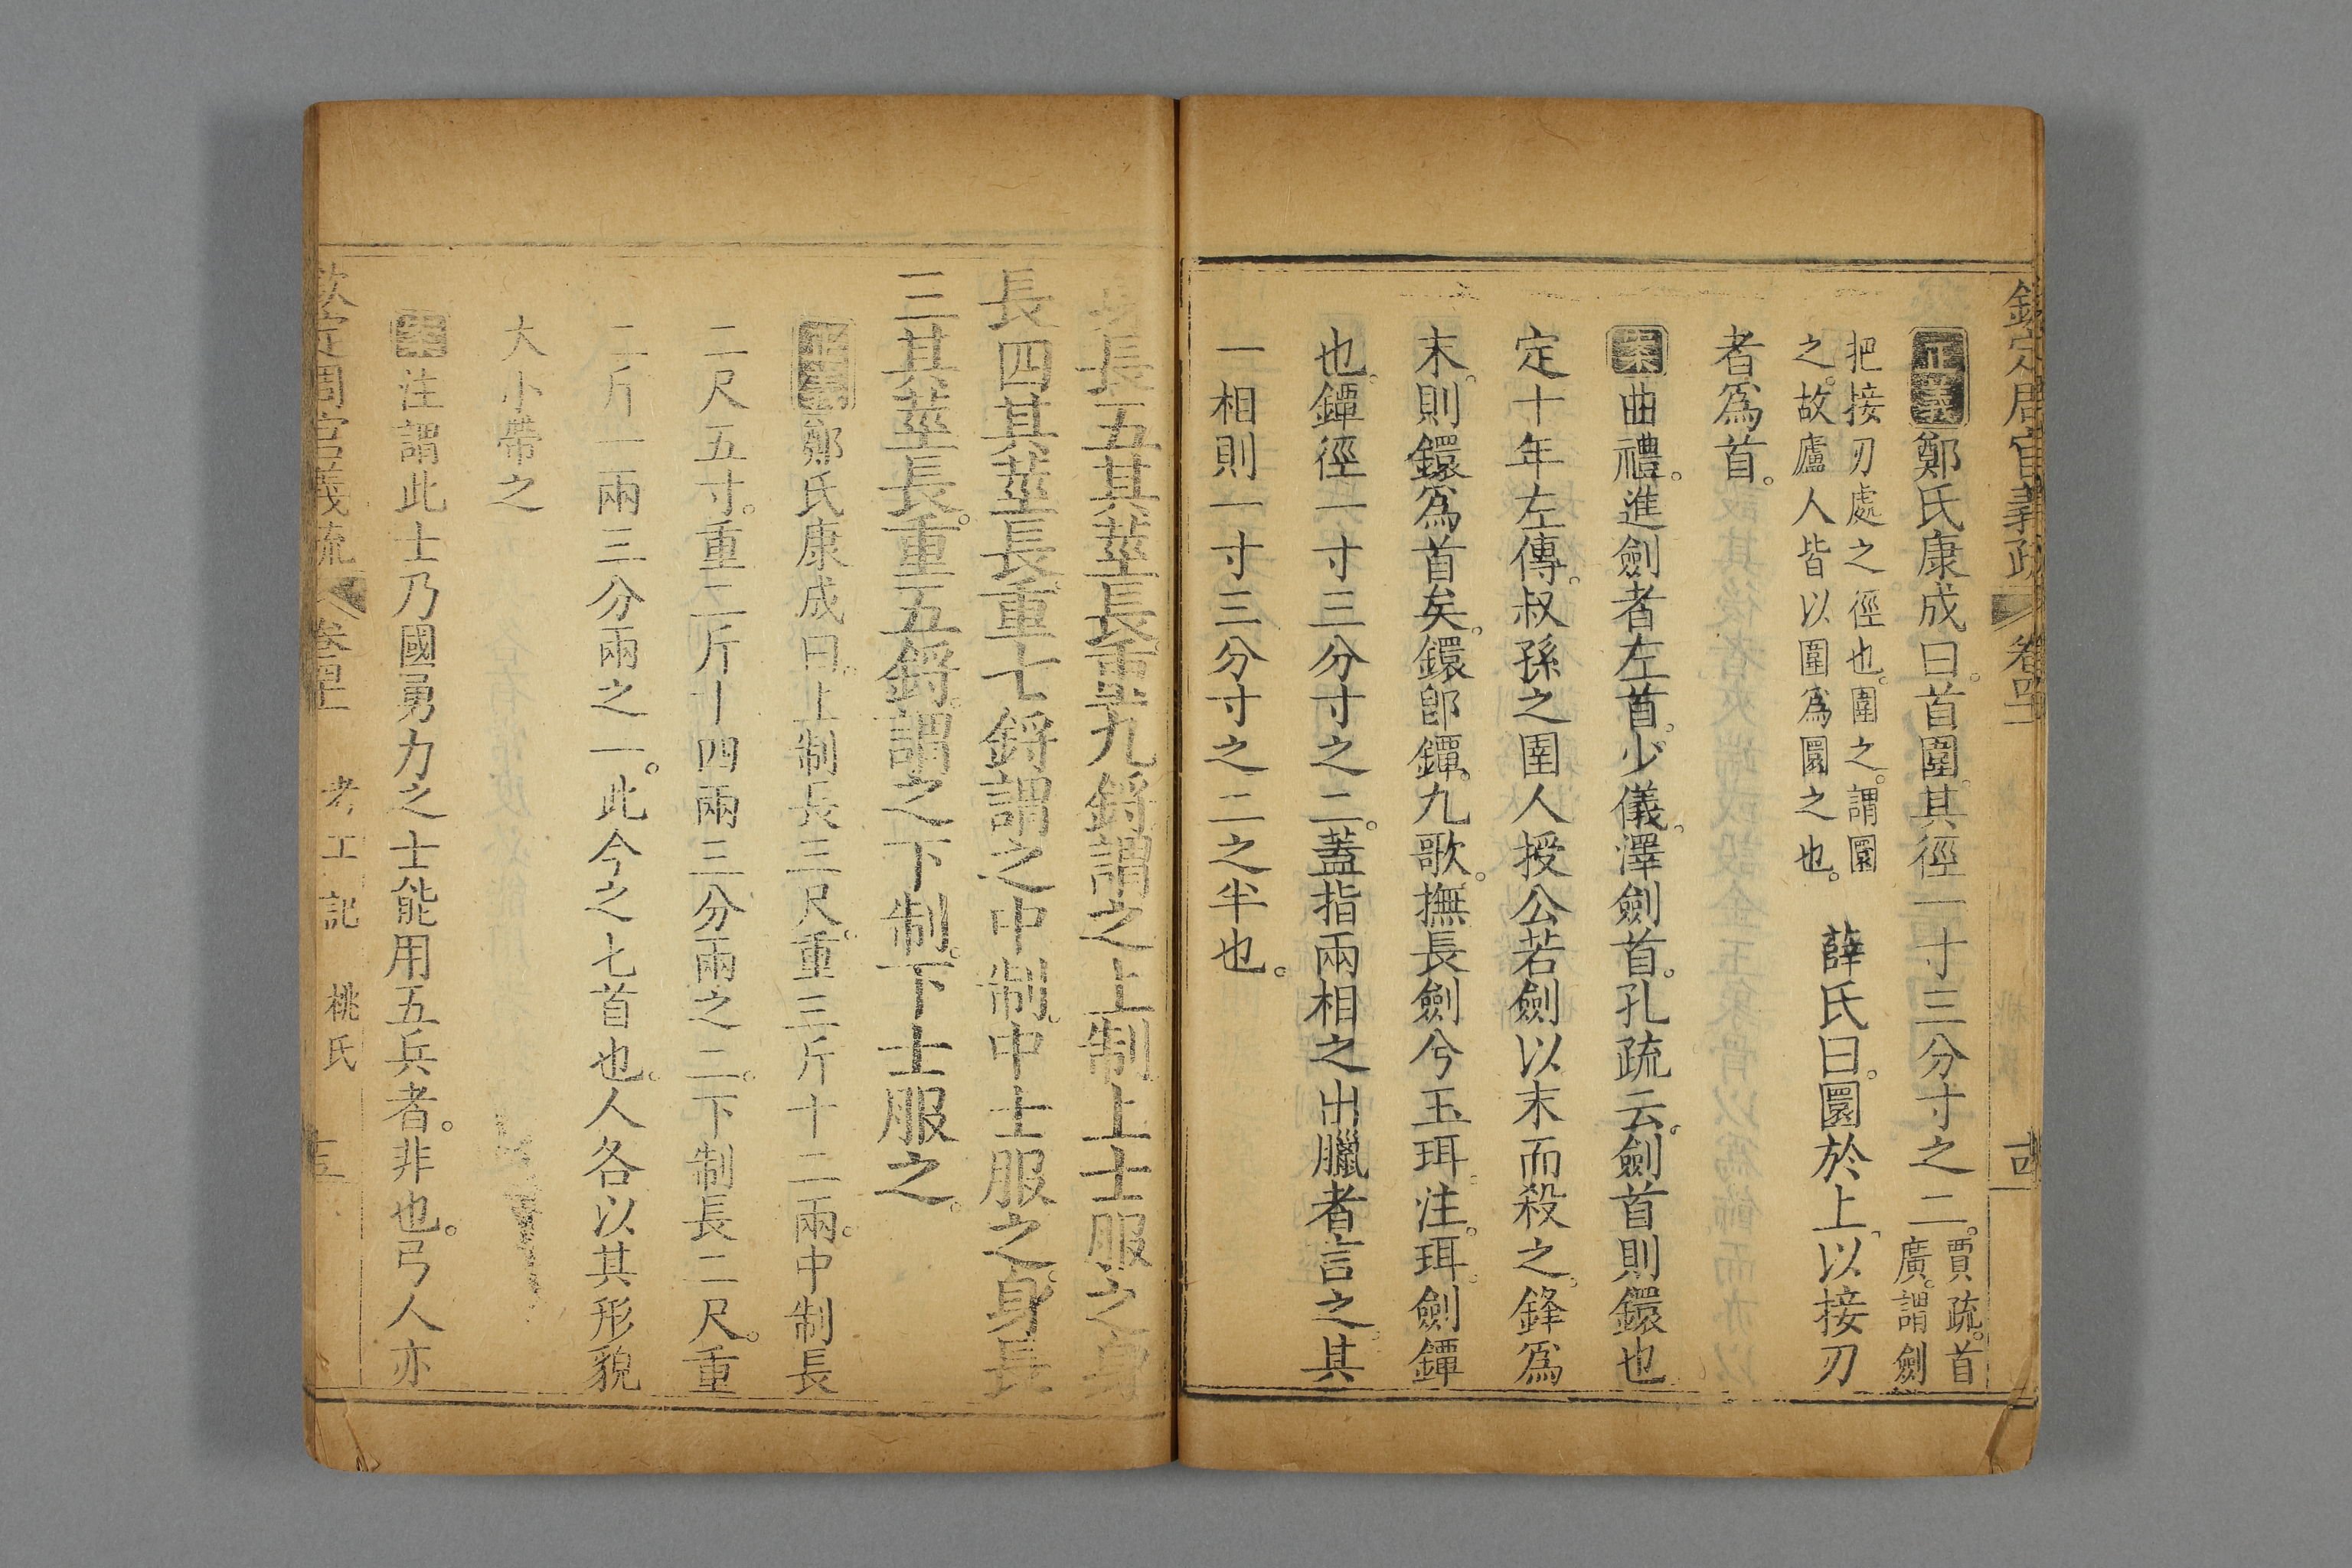 欽定周官義疏 卷四十 十四
正義鄭氏康成曰。首圍。其徑一寸三分寸之二。賈疏。首廣。謂劍
把接刃處之徑也。圍之。謂圜之。故廬人皆以圍爲圜之也。 薛氏曰。圜於上。以接刃
者爲首。
案曲禮。進劍者左首。少儀。澤劍首。孔疏云。劍首則鐶也
定十年左傳。叔孫之圉人授公若劍以末而殺之。鋒爲
末。則鐶爲首矣。鐶卽鐔。九歌。撫長劍兮玉珥。注。珥。劍鐔
也。鐔徑一寸三分寸之二。蓋指兩相之出臘者言之。其
一相則一寸三分寸之二之半也。
身長五其莖長重九鋝謂之上制上士服之身
長四其莖長重七鋝謂之中制。中士服之。身長
三其莖長。重五鋝。謂之下制。下士服之。
正義鄭氏康成曰。上制長三尺。重三斤十二兩。中制長
二尺五寸。重二斤十四兩三分兩之二。下制長二尺。重
二斤一兩三分兩之一。此今之匕首也。人各以其形貌
大小帶之
案注謂此士乃國勇力之士能用五兵者。非也。弓人亦
欽定周官義疏 卷四十 考工記 桃氏